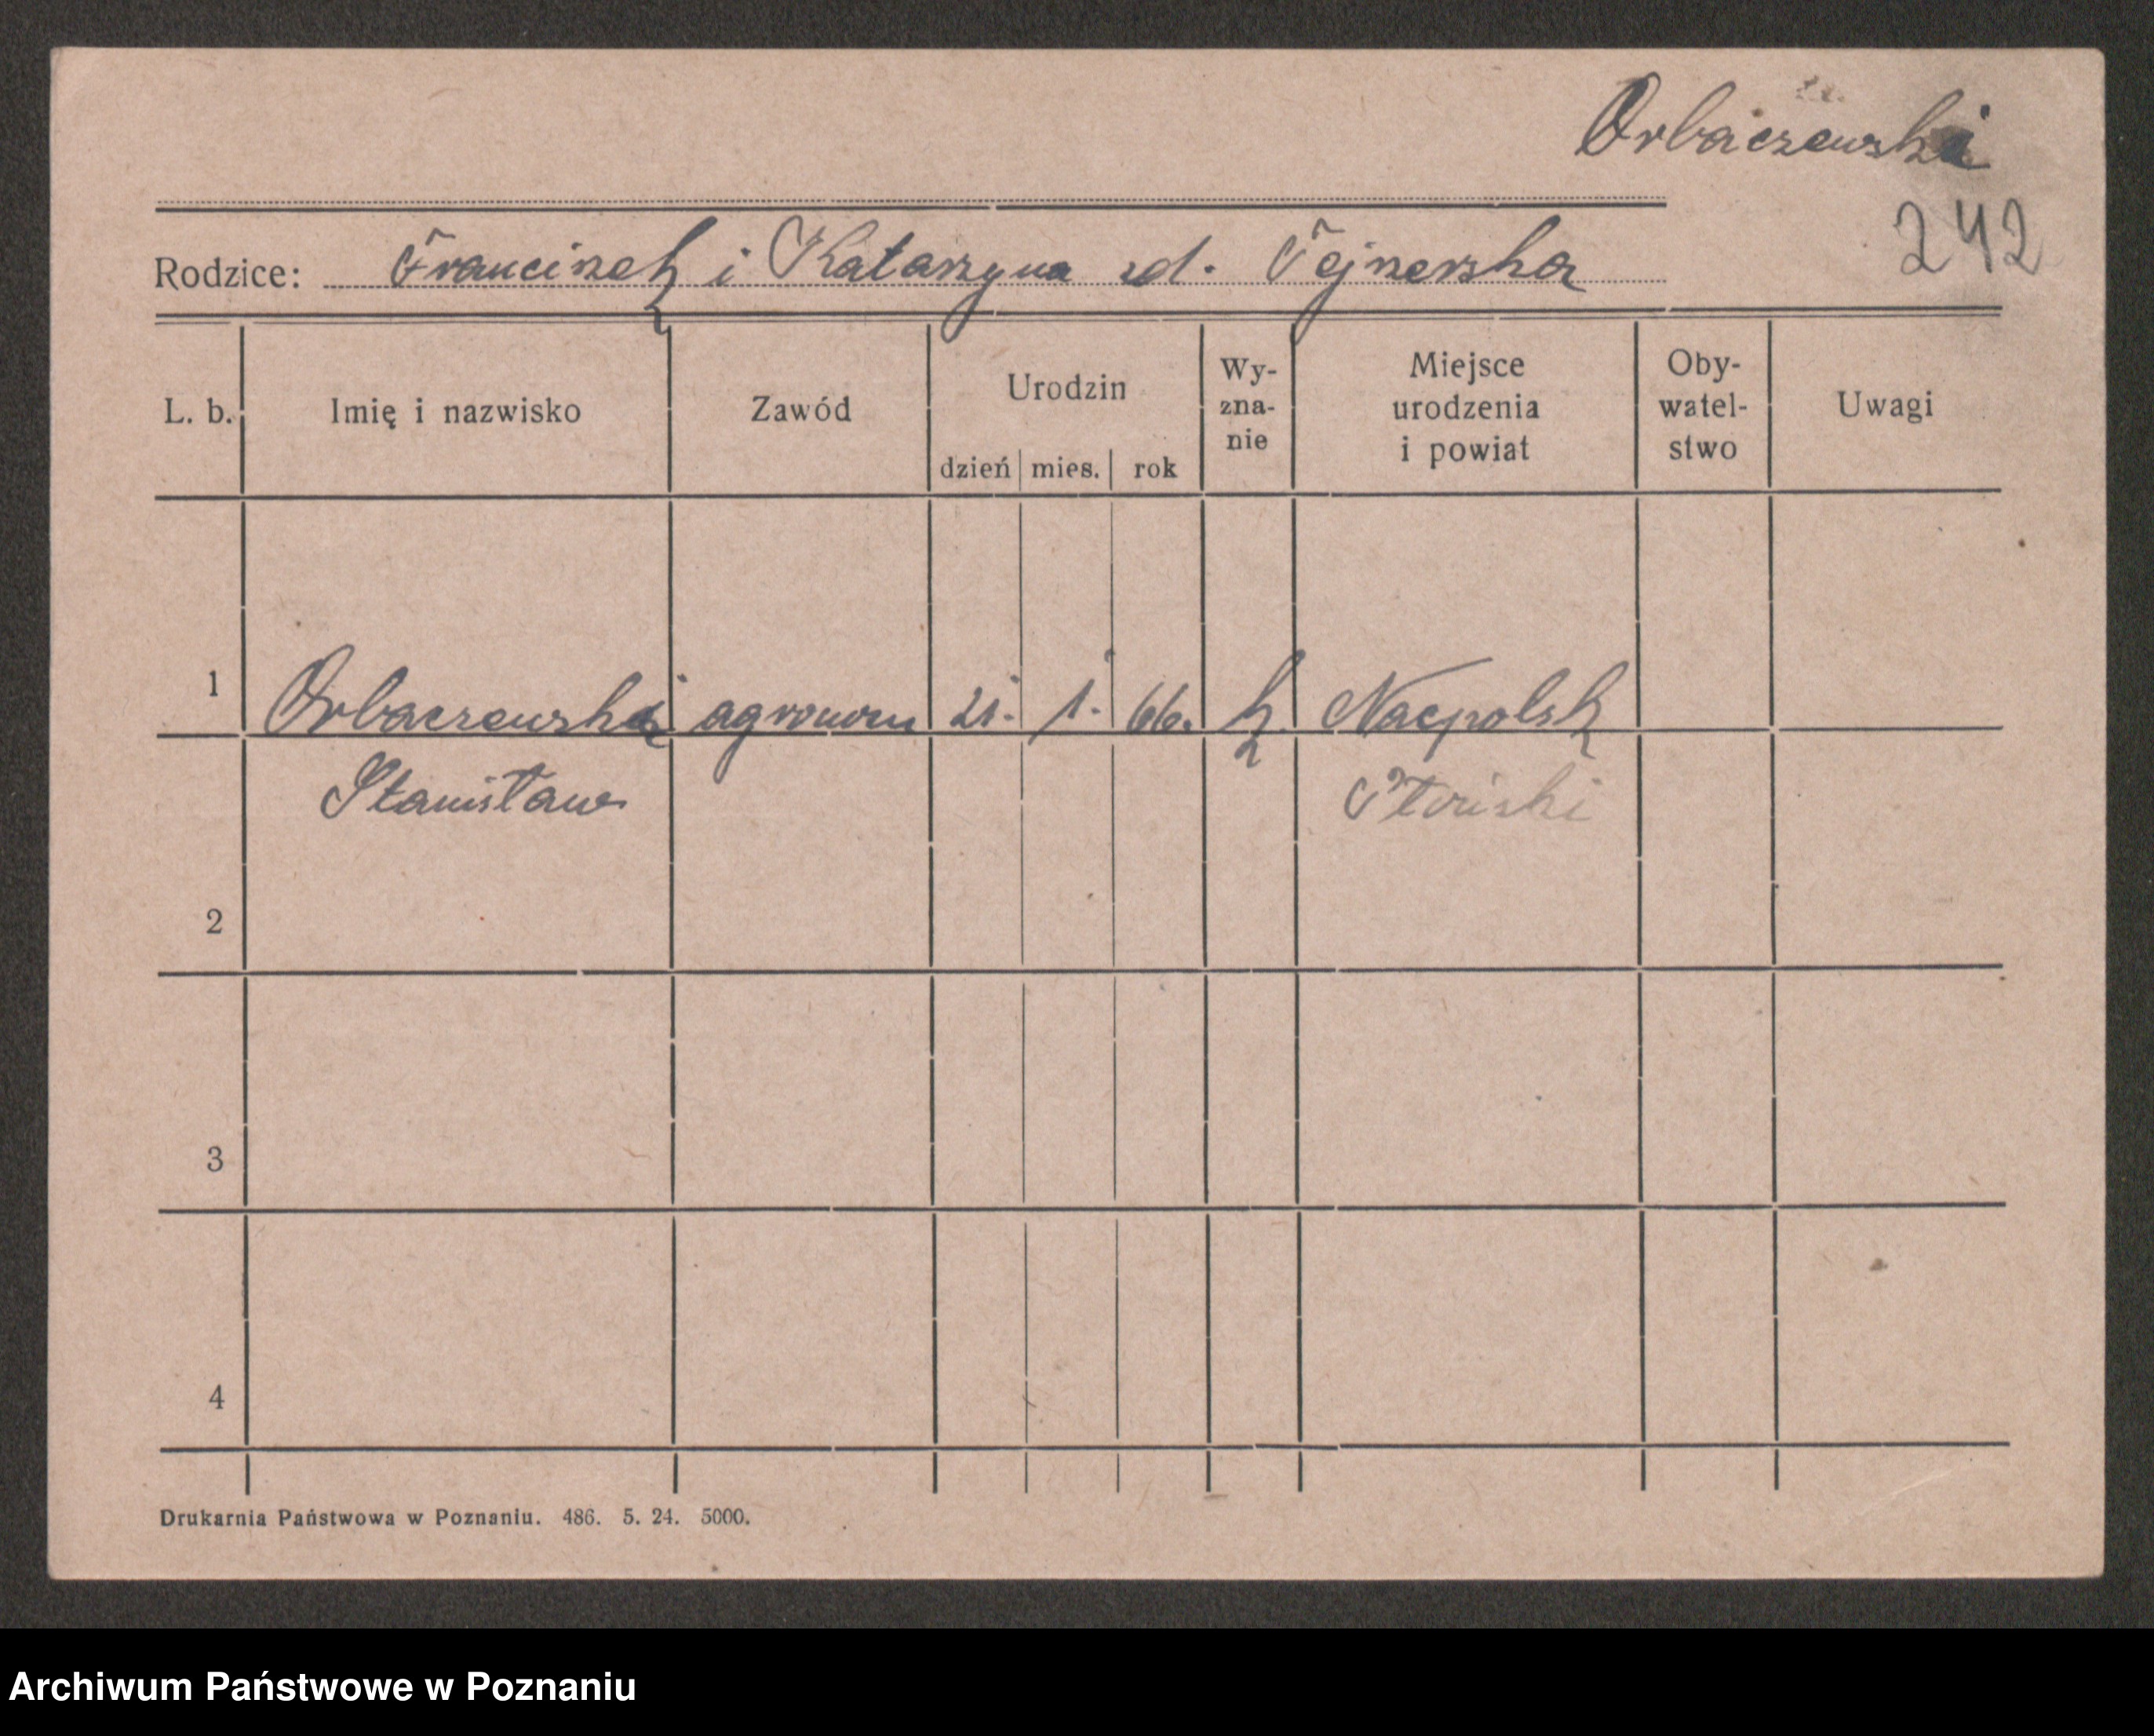 Orbaczewski
242
Rodzice: Francizek i Katarzyna zd. Pejzerska
L. b. Imię i nazwisko Zawód Urodzin dzień mies. rok Wy-zna-nie Miejsce urodzenia i powiat Oby-watel-stwo Uwagi
1 Orbaczewski agronom 21. 1. 66. k. Nacpolsk
Stanisław Płoński
2
3
4
Drukarnia Państwowa w Poznaniu. 486. 5. 24. 5000.
Archiwum Państwowe w Poznaniu